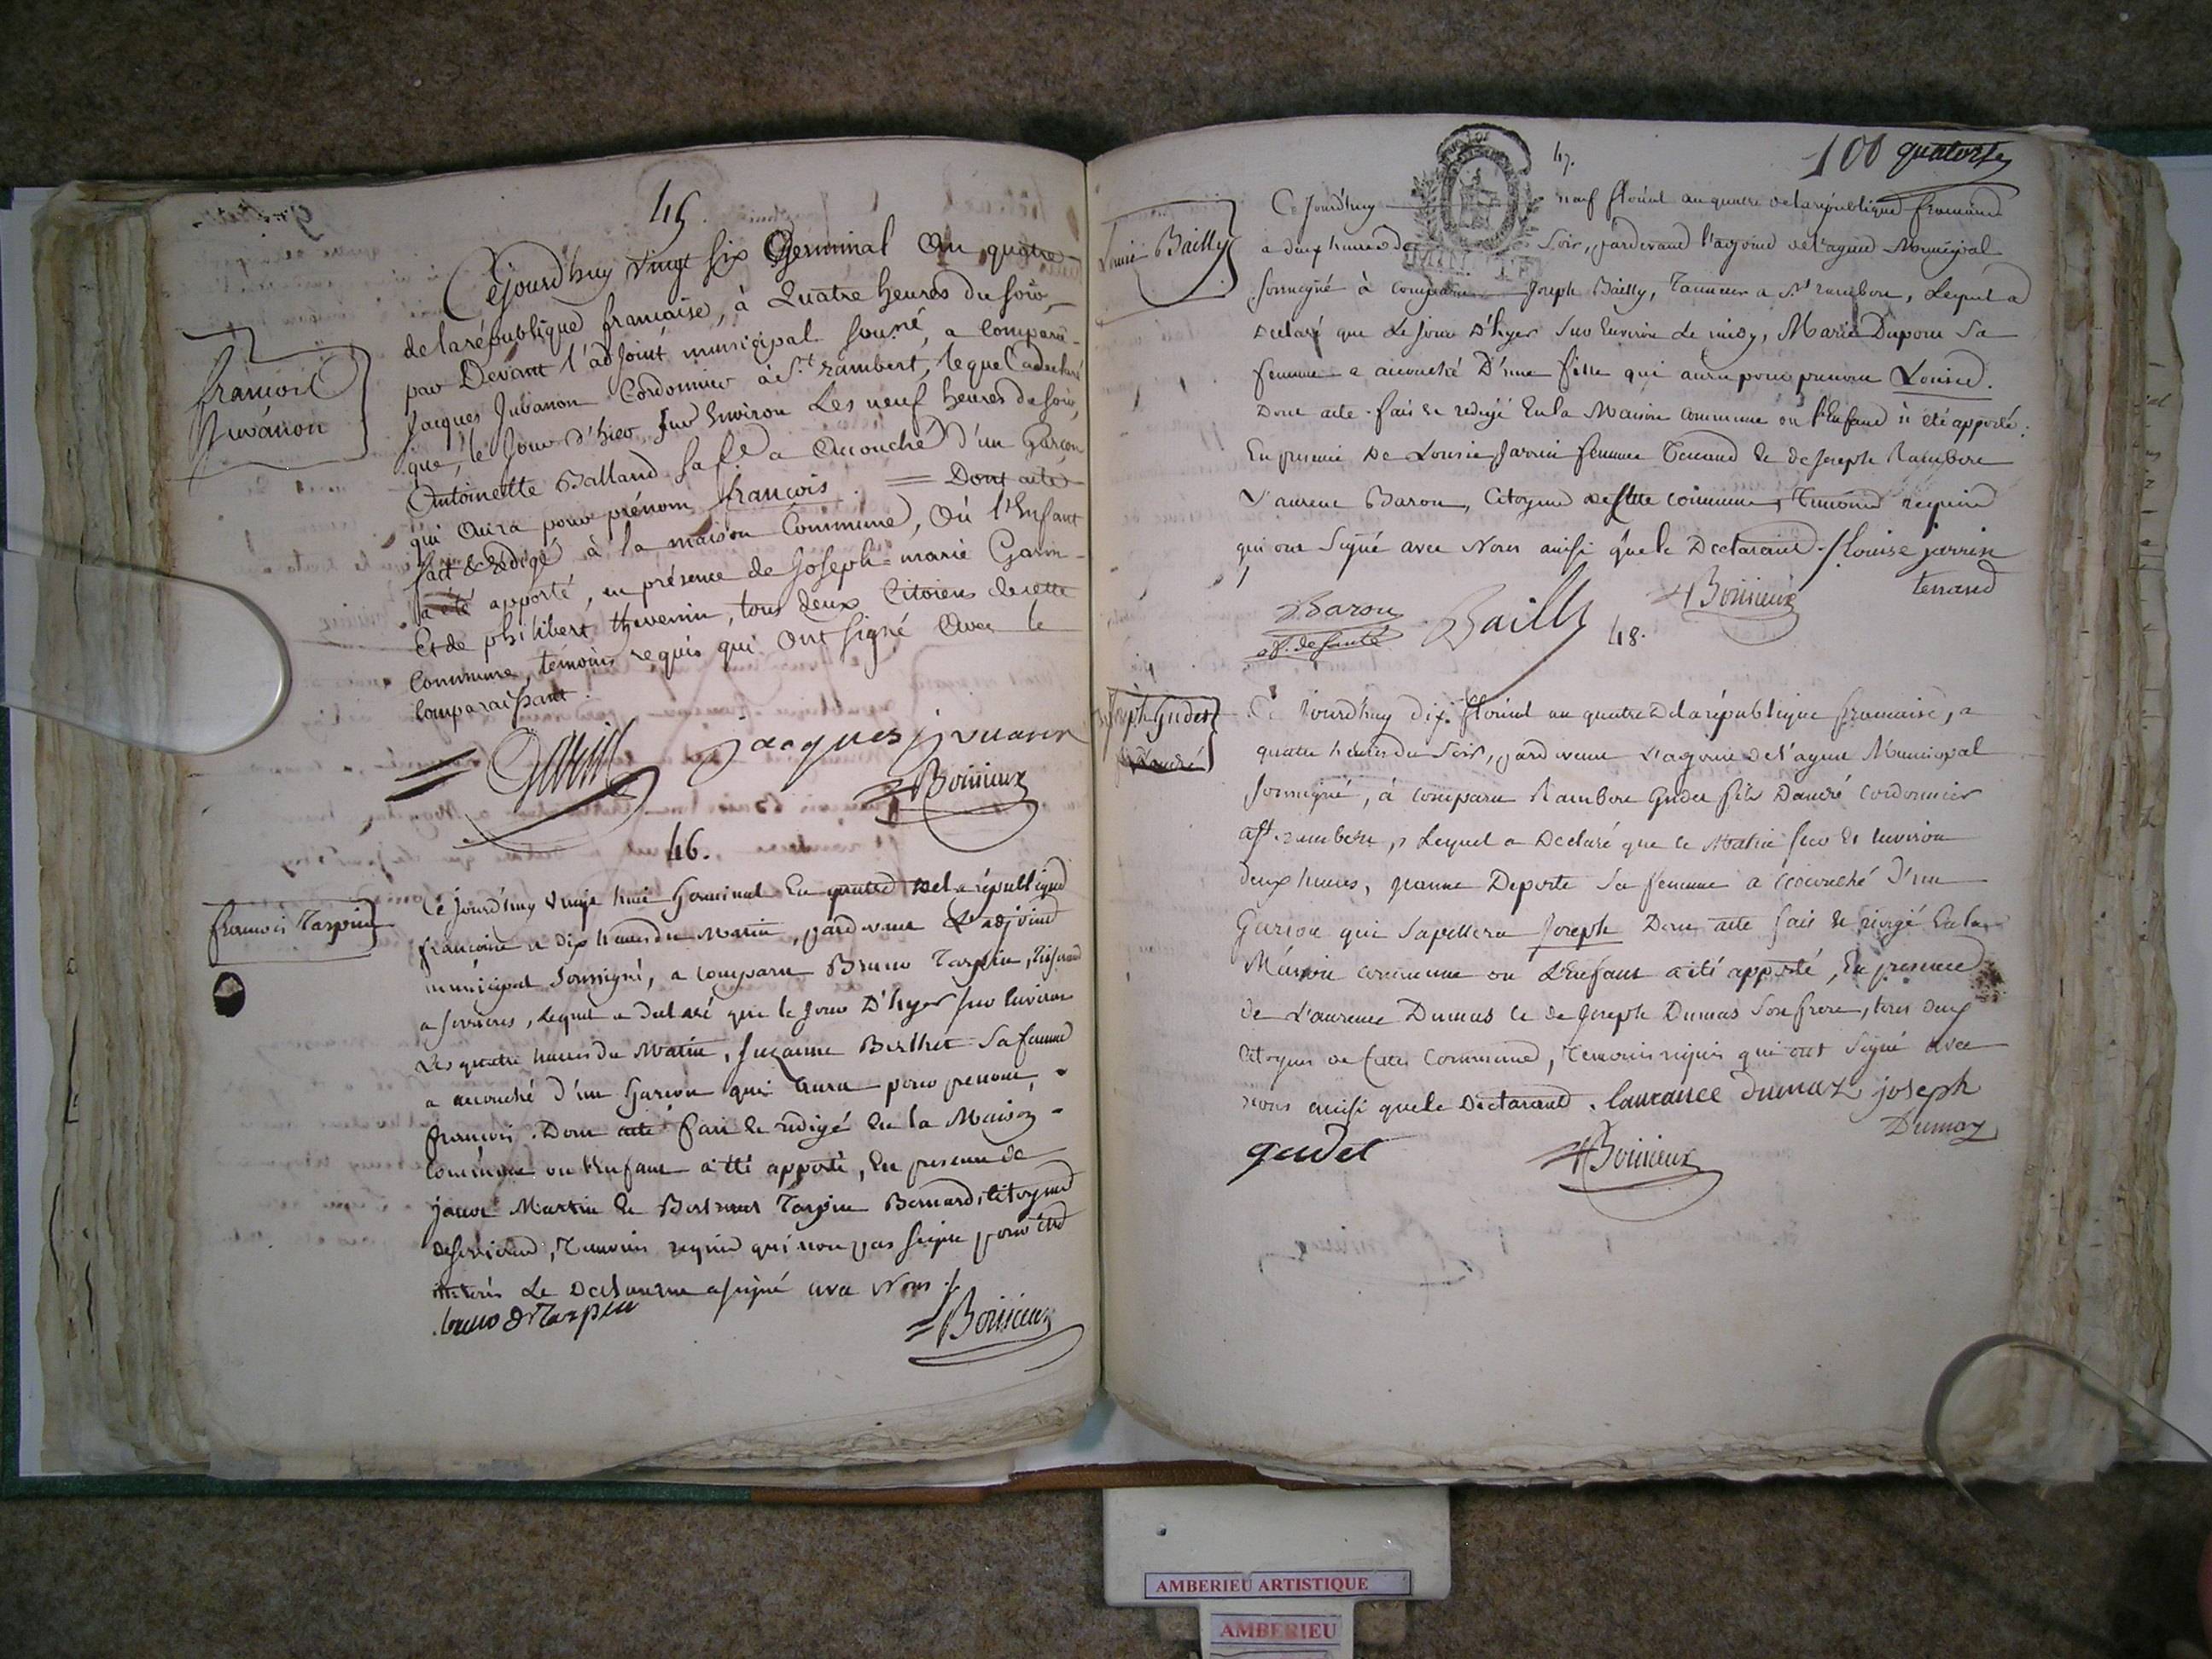 45.
françois
Juvanon
Cejourd'huy vingt six Germinal An quatre
de la république francaise, à Quatre heures du soir,
par Devant l'adjoint municipal sousné, a comparu
Jacques Jubanon Cordonnier à St. rambert, lequel a declaré
que, le Jour d'hier sur Environ Les neuf heures du soir,
Antoinette Balland sa fe a Accouché d'un Garcon
qui aura pour prénom françois. = Dont acte
fait & rédigé à la maison Commune, où l'Enfant
a été apporté, en présence de Joseph=marie Garin
Et de philibert thevenin, tous deux Citoiens de cette
Commune, témoins requis qui ont signé avec le
comparaissant.
Garin Jacques juvanon
Boissieux
46.
francois Tarpin
Ce jourd'huy vingt huit Germinal En quatre de la république
francaise a dix heures du matin, pardevant L'adjoint
municipal soussigné, a comparu Bruno Tarpin, tisserand
a serrieres, lequel a declaré que le jour D'hyer sur lenviron
Les quatre heures du Matin, Suzanne Berthet sa femme
a accouché d'un Garcon qui haura pour prenom,
francois. Dont acte fait et redigé En la Maison
Commune ou l'Enfant a été apporté, En presence de
Martin Et Tarpin Bernard, Citoyens
, Temoins requis qui non pas signe pour
Le Declarant a signé avec Nous ./.
bruno Tarpin
Boissieux
47.
100 quatorze
Louise Bailly
Ce Jourd'huy neuf floréal an quatre de la république francaise
a deux heures du Soir, pardevant l'adjoint de l'agent Municipal
soussigné à comparu Joseph Bailly, Tanneur a St. rambert, Lequel a
Declaré que Le jour D'hyer Sur Environ Le midy, Marie Dupont Sa
femme a accouché D'une fille qui aura pour prenom Louise.
Dont acte fait et redigé En la Maison Commune où l'Enfant a été apporté.
En presence De Louise Jarrin femme Tenand Et de Joseph Rambert
Laurent Baron, Citoyens de cette commune, Temoins requis
qui ont Signé avec Nous ainsi que le Declarant ./. Louise jarrin
tenand
Baron
of. de santé
Bailly
Boissieux
48.
Joseph Gudet
D'andré
Ce Jourd'huy dix floréal an quatre de la république francaise, a
quatre heures du Soir, pardevant L'adjoint de l'agent Municipal
soussigné, à comparu Rambert Gudet fils D'andré Cordonnier
a St. rambert, Lequel a Declaré que ce Matin sur Et lenviron
deux heures, jeanne Deporte Sa femme a accouché D'un
Garcon qui Sapellera Joseph Dont acte fait et rédigé En la
Maison commune où L'Enfant a été apporté, En presence
de Laurence Dumas Et de Joseph Dumas Son frere, tous deux
Citoyens de Cette Commune, Temoins requis qui ont Signé avec
nous ainsi que le Declarant. laurance dumaz joseph
Dumaz
gudet
Boissieux
AMBERIEU ARTISTIQUE
AMBERIEU